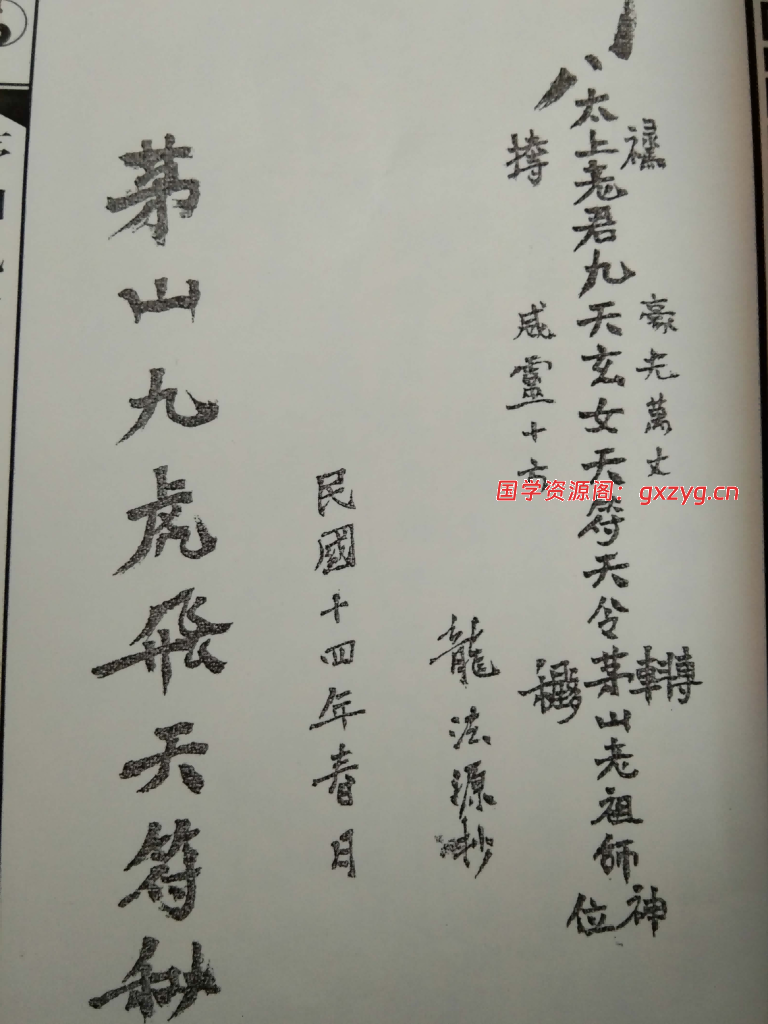 豪光萬丈
太上老君九天玄女天符天令茅山老祖師神位
威靈十方
龍法源抄
民國十四年春日
茅山九虎飛天符秘
国学资源阁：gxzyg.cn